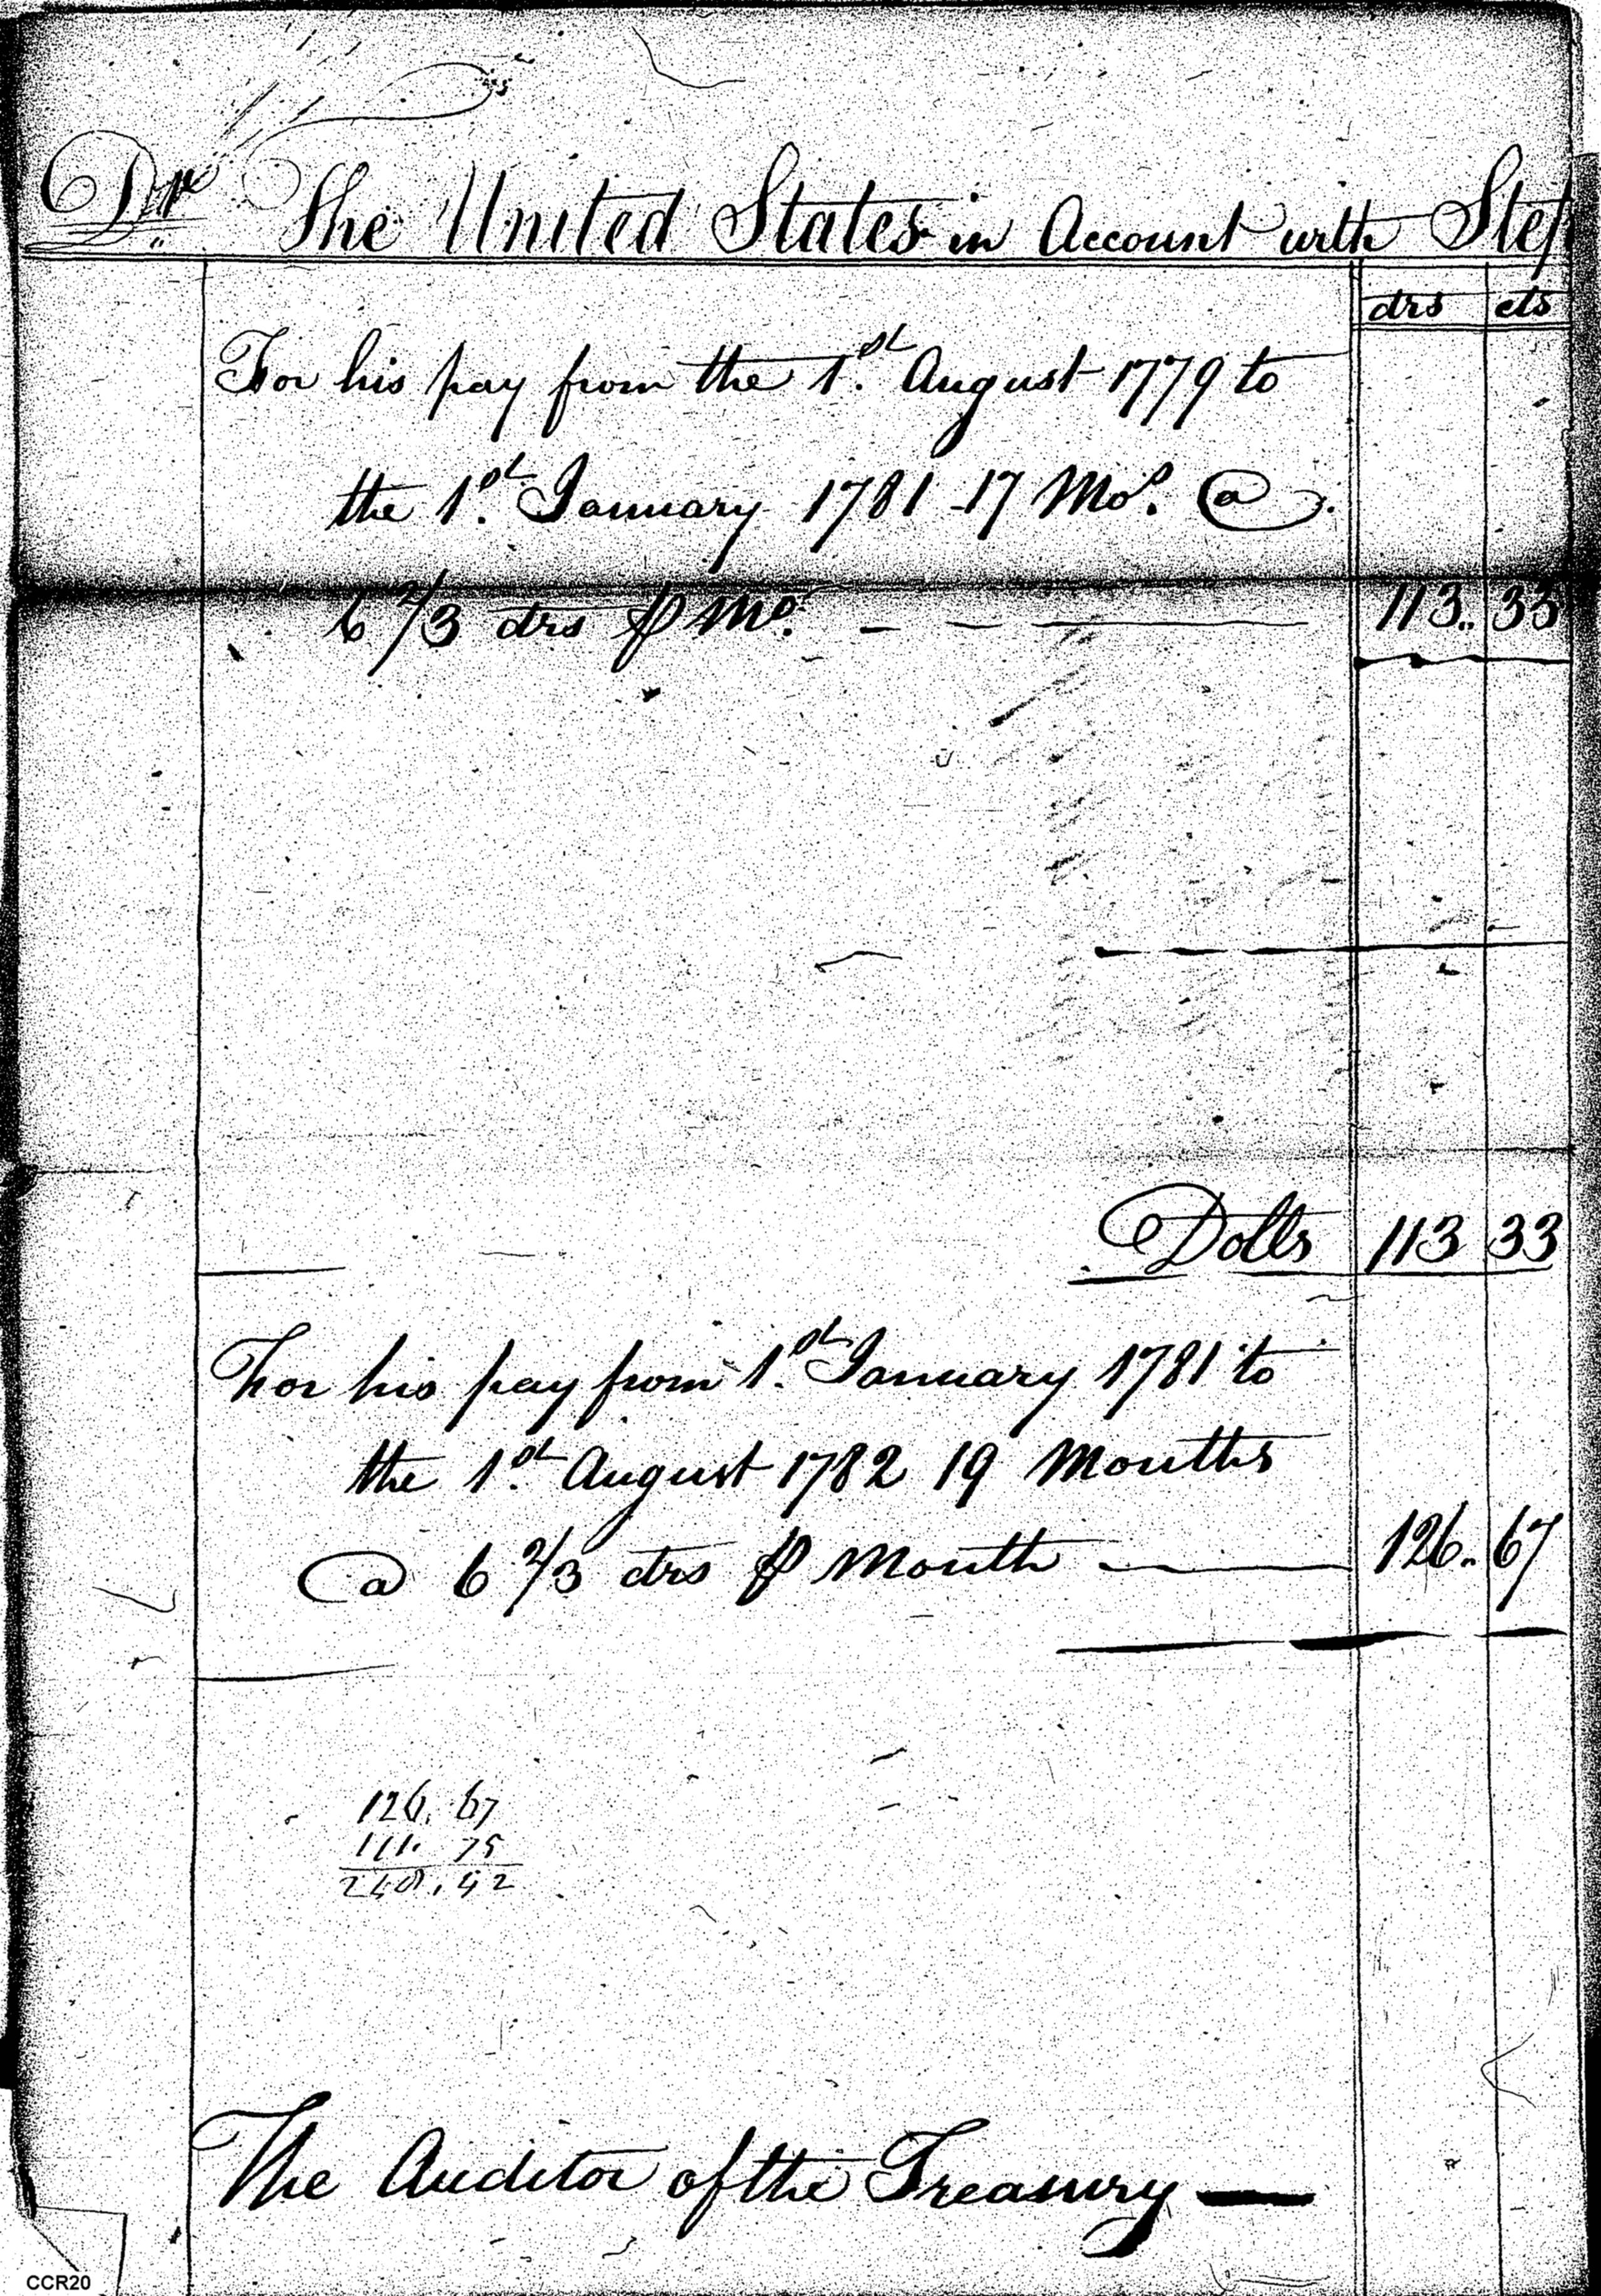 Dr. The United States in Account with Step
drs cts
For his pay from the 1st August 1779 to
the 1st January 1781 - 17 Mos. @
6 2/3 drs ⅌ Mo. — — — 113.. 33
Dolls 113 33
For his pay from 1st January 1781 to
the 1st August 1782 19 Months
@ 6 2/3 drs ⅌ Month — 126.. 67
126. 67
111. 75
240. 42
The Auditor of the Treasury —
CCR20